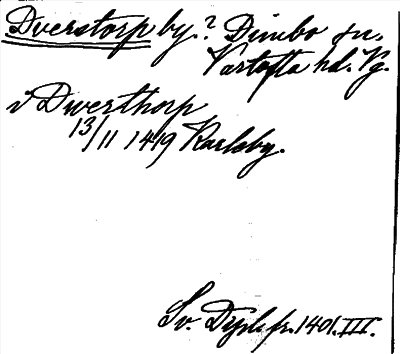 Dverstorp by.? Dimbo sn.
Vartofta hd. Vg.
i Dwerthorp
13/11 1419 Karleby.
Sv. Dipl. fr. 1401. III.